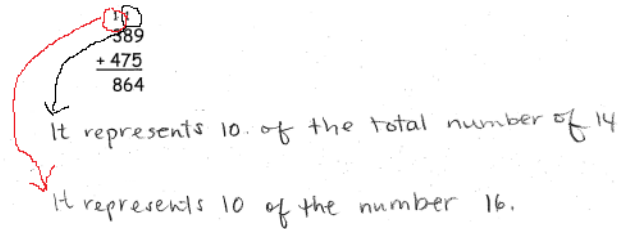 11
389
+ 475
864
It represents 10 of the total number of 14
It represents 10 of the number 16.